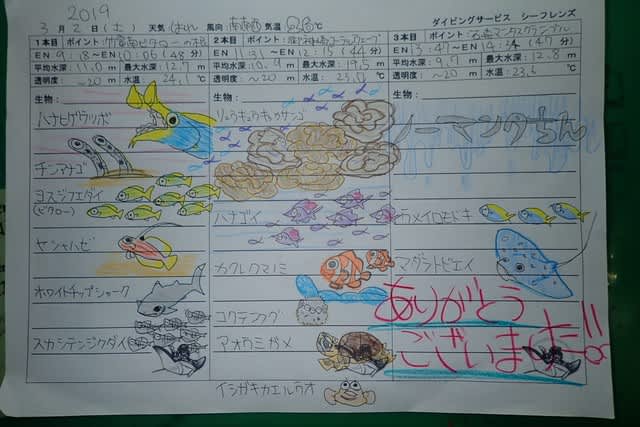 2019
ダイビングサービス シーフレンズ
3月2日(土) 天気 はれ 風向 南南西 気温 ℃
1本目 ポイント 竹富南ビタローの根
EN 9:18～EN 10:06 (48分)
平均水深: 11.0 m 最大水深: 12.1 m
透明度: ～20 m 水温: 24.1 ℃
生物:
ハナヒゲウツボ
チンアナゴ
ヨスジフエダイ
(ビタロー)
ヤシャハゼ
ホワイトチップシャーク
スカシテンジクダイ
2本目 ポイント
EN 11:31～EN 12:15 (44分)
平均水深: 10.9 m 最大水深: 19.5 m
透明度: ～20 m 水温: 23.5 ℃
生物:
リュウキュウキッカサンゴ
ハナゴイ
カクレクマノミ
コクテンフグ
アオウミガメ
イシガキカエルウオ
3本目 ポイント 石崎マンタスクランブル
EN 13:47～EN 14:34 (47分)
平均水深: 9.7 m 最大水深: 12.8 m
透明度: ～20 m 水温: 23.6 ℃
生物:
ノーマンタちん
ウメイロモドキ
マダラトビエイ
ありがとう
ございました!!